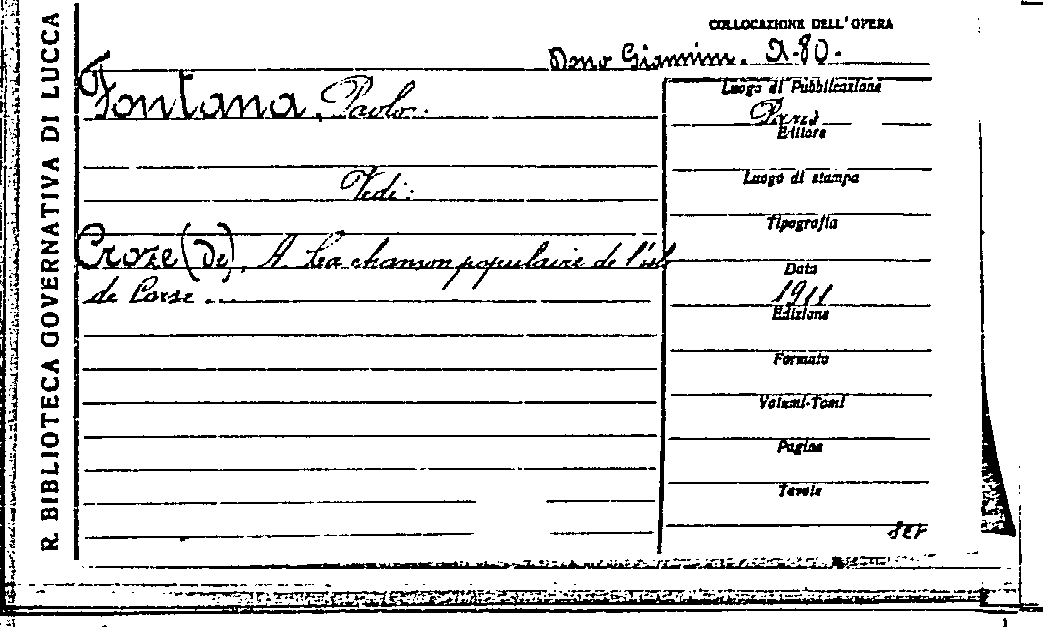 R. BIBLIOTECA GOVERNATIVA DI LUCCA
COLLOCAZIONE DELL'OPERA
Dono Giannini. A-80.
Fontana, Paolo.
Vedi:
Croze (De), A. La chanson populaire de l'isle
de Corse.
Luogo di Pubblicazione
Paris
Editore
Luogo di stampa
Tipografia
Data
1911
Edizione
Formato
Volumi-Tomi
Pagine
Tavole